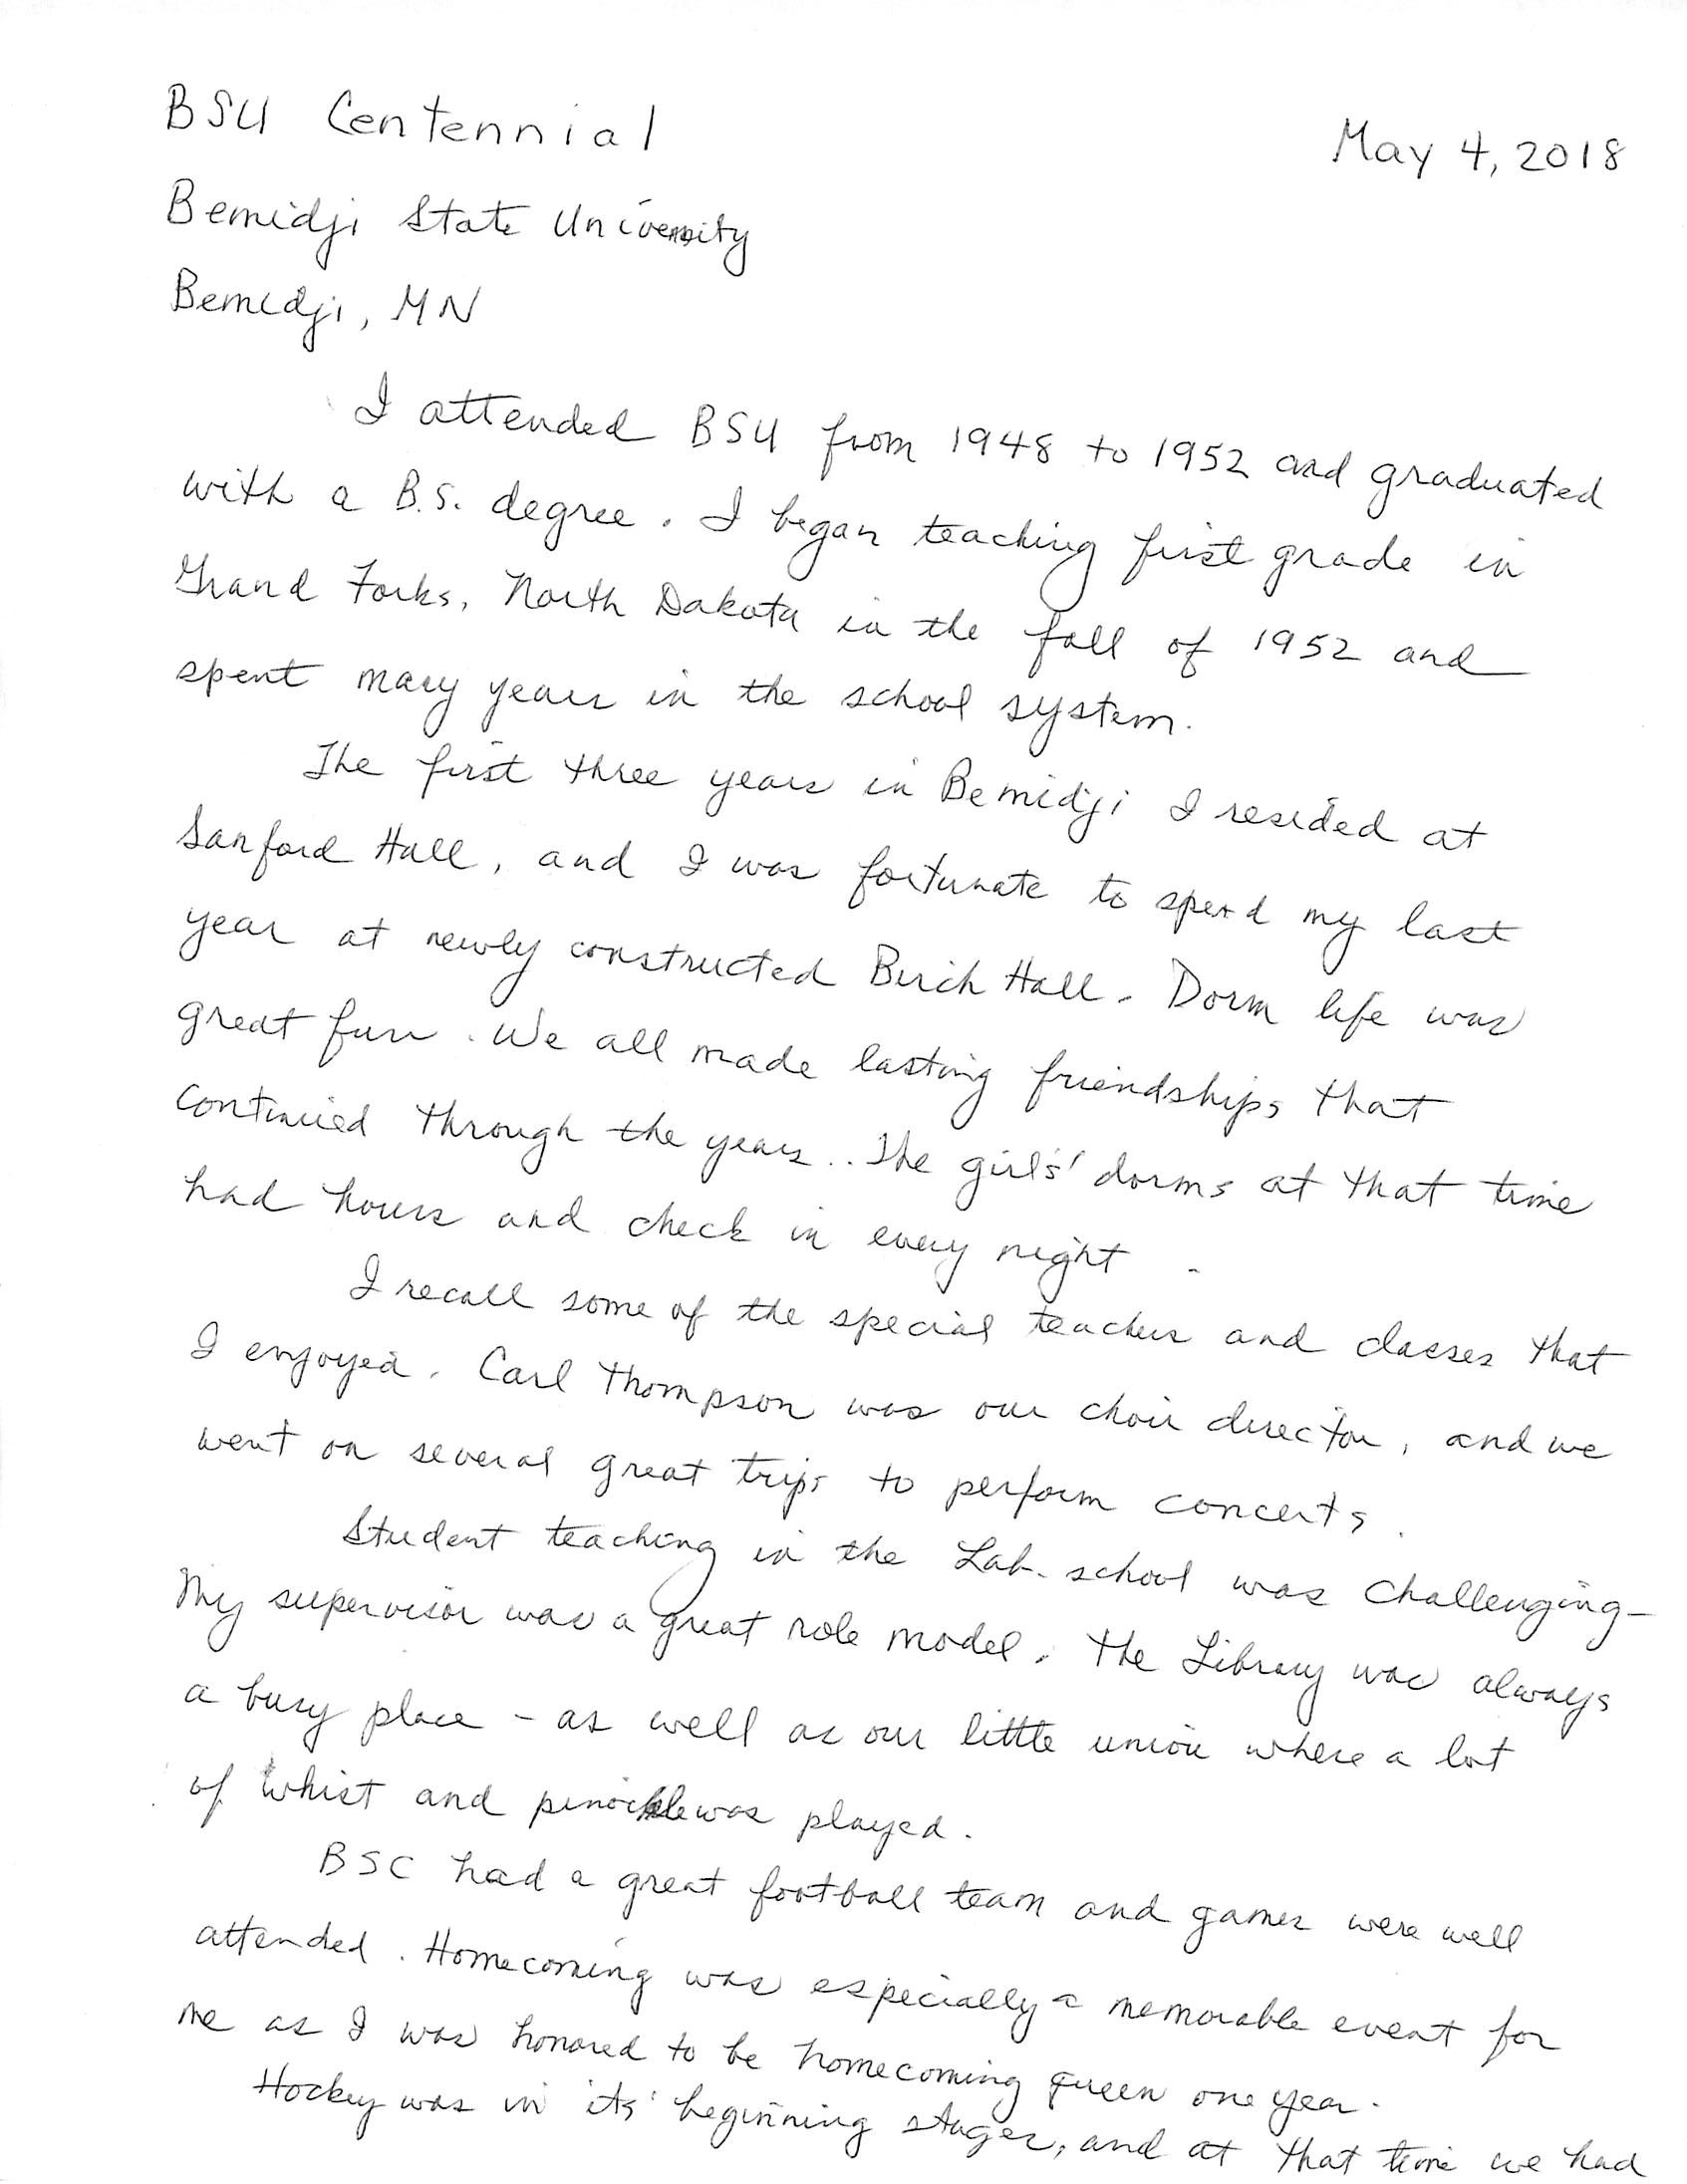 BSU Centennial
May 4, 2018
Bemidji State University
Bemidji, MN
I attended BSU from 1948 to 1952 and graduated
with a B.S. degree. I began teaching first grade in
Grand Forks, North Dakota in the fall of 1952 and
spent many years in the school system.
The first three years in Bemidji I resided at
Sanford Hall, and I was fortunate to spend my last
year at newly constructed Birch Hall. Dorm life was
great fun. We all made lasting friendships that
continued through the years.. The girls' dorms at that time
had hours and check in every night.
I recall some of the special teachers and classes that
I enjoyed. Carl Thompson was our choir director, and we
went on several great trips to perform concerts.
Student teaching in the Lab. school was challenging—
My supervisor was a great role model. The Library was always
a busy place - as well as our little union where a lot
of whist and pinochle was played.
BSC had a great football team and games were well
attended. Homecoming was especially a memorable event for
me as I was honored to be homecoming queen one year.
Hockey was in its' beginning stages, and at that time we had